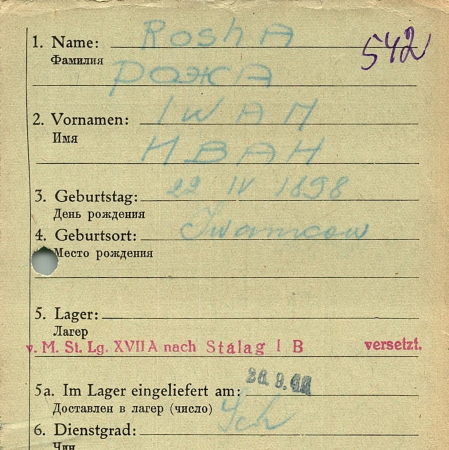 1. Name: RoshA
542
Фамилия
РОЖА
2. Vornamen: IWAN
Имя
ИВАН
3. Geburtstag: 22 IV 1898
День рождения
4. Geburtsort: Iwancow
Место рождения
5. Lager:
Лагер
v. M. St. Lg. XVII A nach Stalag I B versetzt.
5a. Im Lager eingeliefert am:
Доставлен в лагер (число)
6. Dienstgrad:
Чин